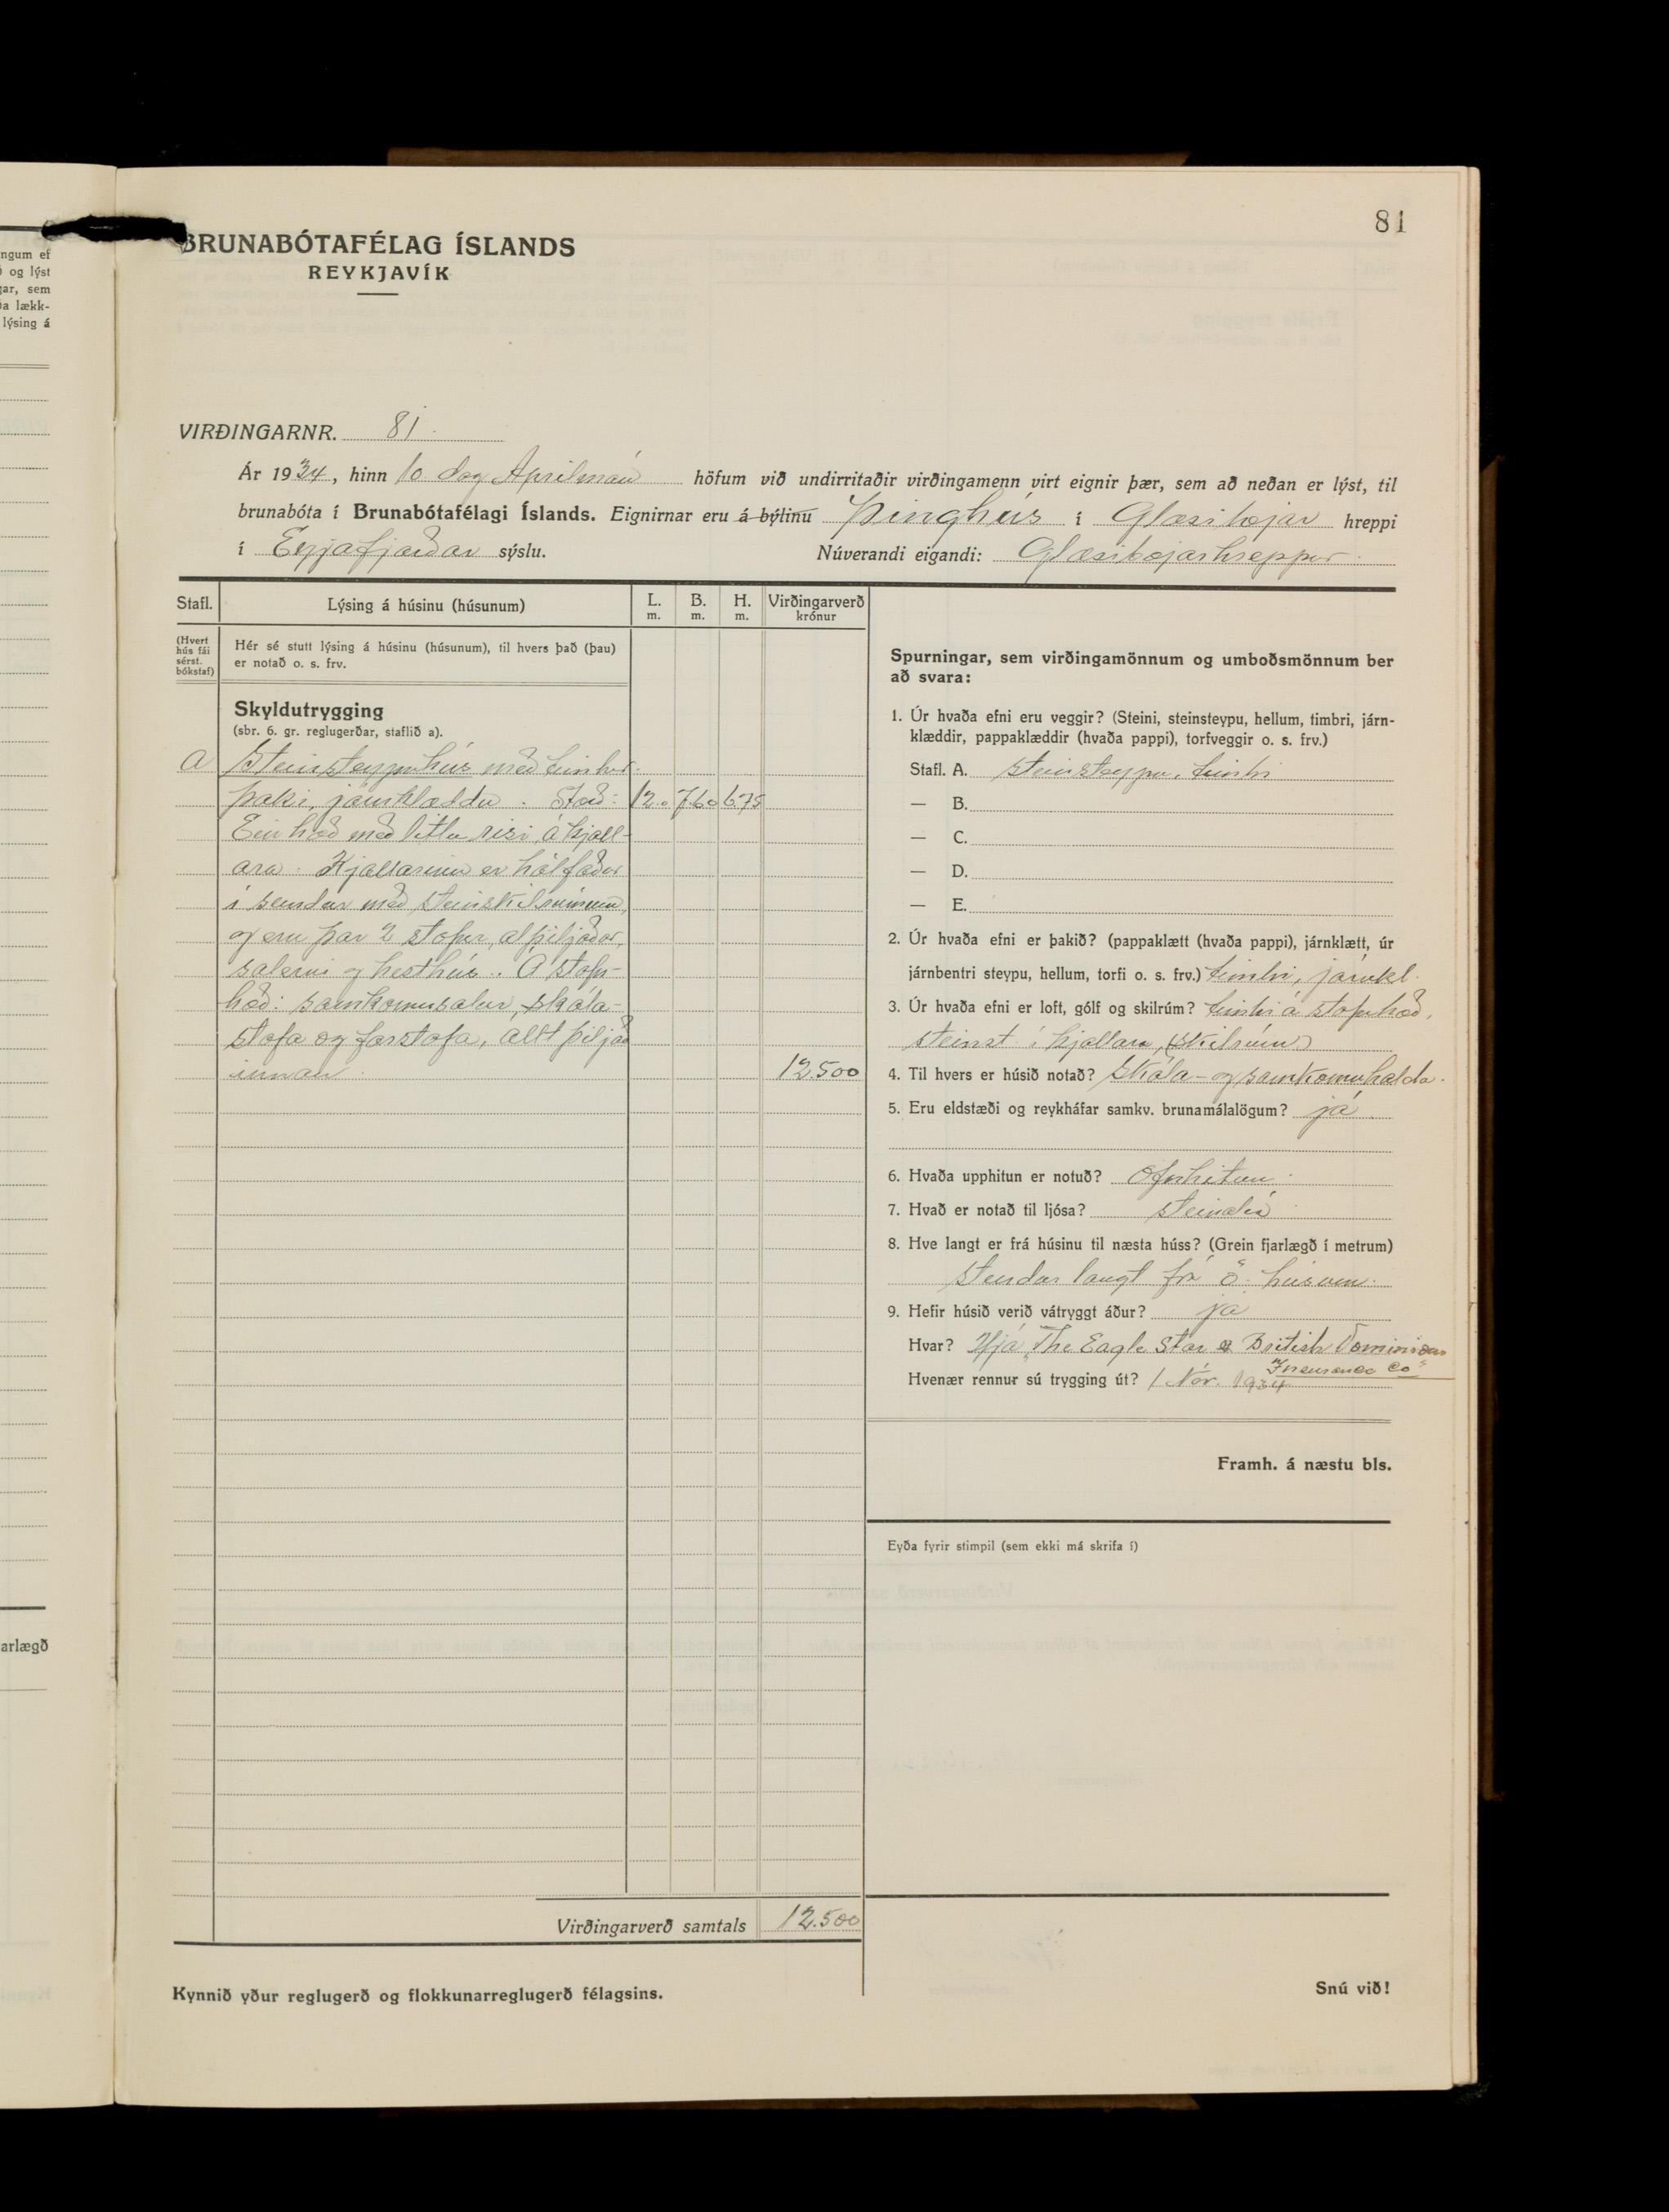 81
BRUNABÓTAFÉLAG ÍSLANDS
REYKJAVÍK
VIRÐINGARNR. 81.
Ár 1934, hinn 10 dag Aprílmán höfum við undirritaðir virðingamenn virt eignir þær, sem að neðan er lýst, til
brunabóta í Brunabótafélagi Íslands. Eignirnar eru á býlinu Þinghús í Glæsibæjar hreppi
í Eyjafjarðar sýslu. Núverandi eigandi: Glæsibæjarhreppur.
Stafl. Lýsing á húsinu (húsunum) L. m. B. m. H. m. Virðingarverð krónur
(Hvert hús fái sérst. bókstaf)
Hér sé stutt lýsing á húsinu (húsunum), til hvers það (þau)
er notað o. s. frv.
Skyldutrygging
(sbr. 6. gr. reglugerðar, staflið a).
a Steinsteypuhús með timbur-
þaki, járnklæddu. Stærð: 12.0 7.60 6.75
Ein hæð með litlu risi á kjall-
ara. Kjallarinn er hólfaður
í sundur með steinskilrúmum,
og eru þar 2 stofur, alþiljaðar,
salerni og hesthús. Á stofu-
hæð: samkomusalur, skóla-
stofa og forstofa, allt þiljað
innan. 12.500
Virðingarverð samtals 12.500
Kynnið yður reglugerð og flokkunarreglugerð félagsins.
Spurningar, sem virðingamönnum og umboðsmönnum ber
að svara:
1. Úr hvaða efni eru veggir? (Steini, steinsteypu, hellum, timbri, járn-
klæddir, pappaklæddir (hvaða pappi), torfveggir o. s. frv.)
Stafl. A. steinsteypu, timbri
— B.
— C.
— D.
— E.
2. Úr hvaða efni er þakið? (pappaklætt (hvaða pappi), járnklætt, úr
járnbentri steypu, hellum, torfi o. s. frv.) timbri, járnkl.
3. Úr hvaða efni er loft, gólf og skilrúm? timbri á stofuhæð,
steinst. í kjallara, (skilrúm)
4. Til hvers er húsið notað? Skóla- og samkomuhalda.
5. Eru eldstæði og reykháfar samkv. brunamálalögum? já
6. Hvaða upphitun er notuð? Ofnhitun.
7. Hvað er notað til ljósa? steinolía
8. Hve langt er frá húsinu til næsta húss? (Grein fjarlægð í metrum)
Stendur langt frá ö. húsum.
9. Hefir húsið verið vátryggt áður? já
Hvar? Hjá „The Eagle Star & British Dominions
Insurance Co"
Hvenær rennur sú trygging út? 1 Nóv. 1934
Framh. á næstu bls.
Eyða fyrir stimpil (sem ekki má skrifa í)
Snú við!
ngum ef
og lýst
gar, sem
ða lækk-
lýsing á
arlægð